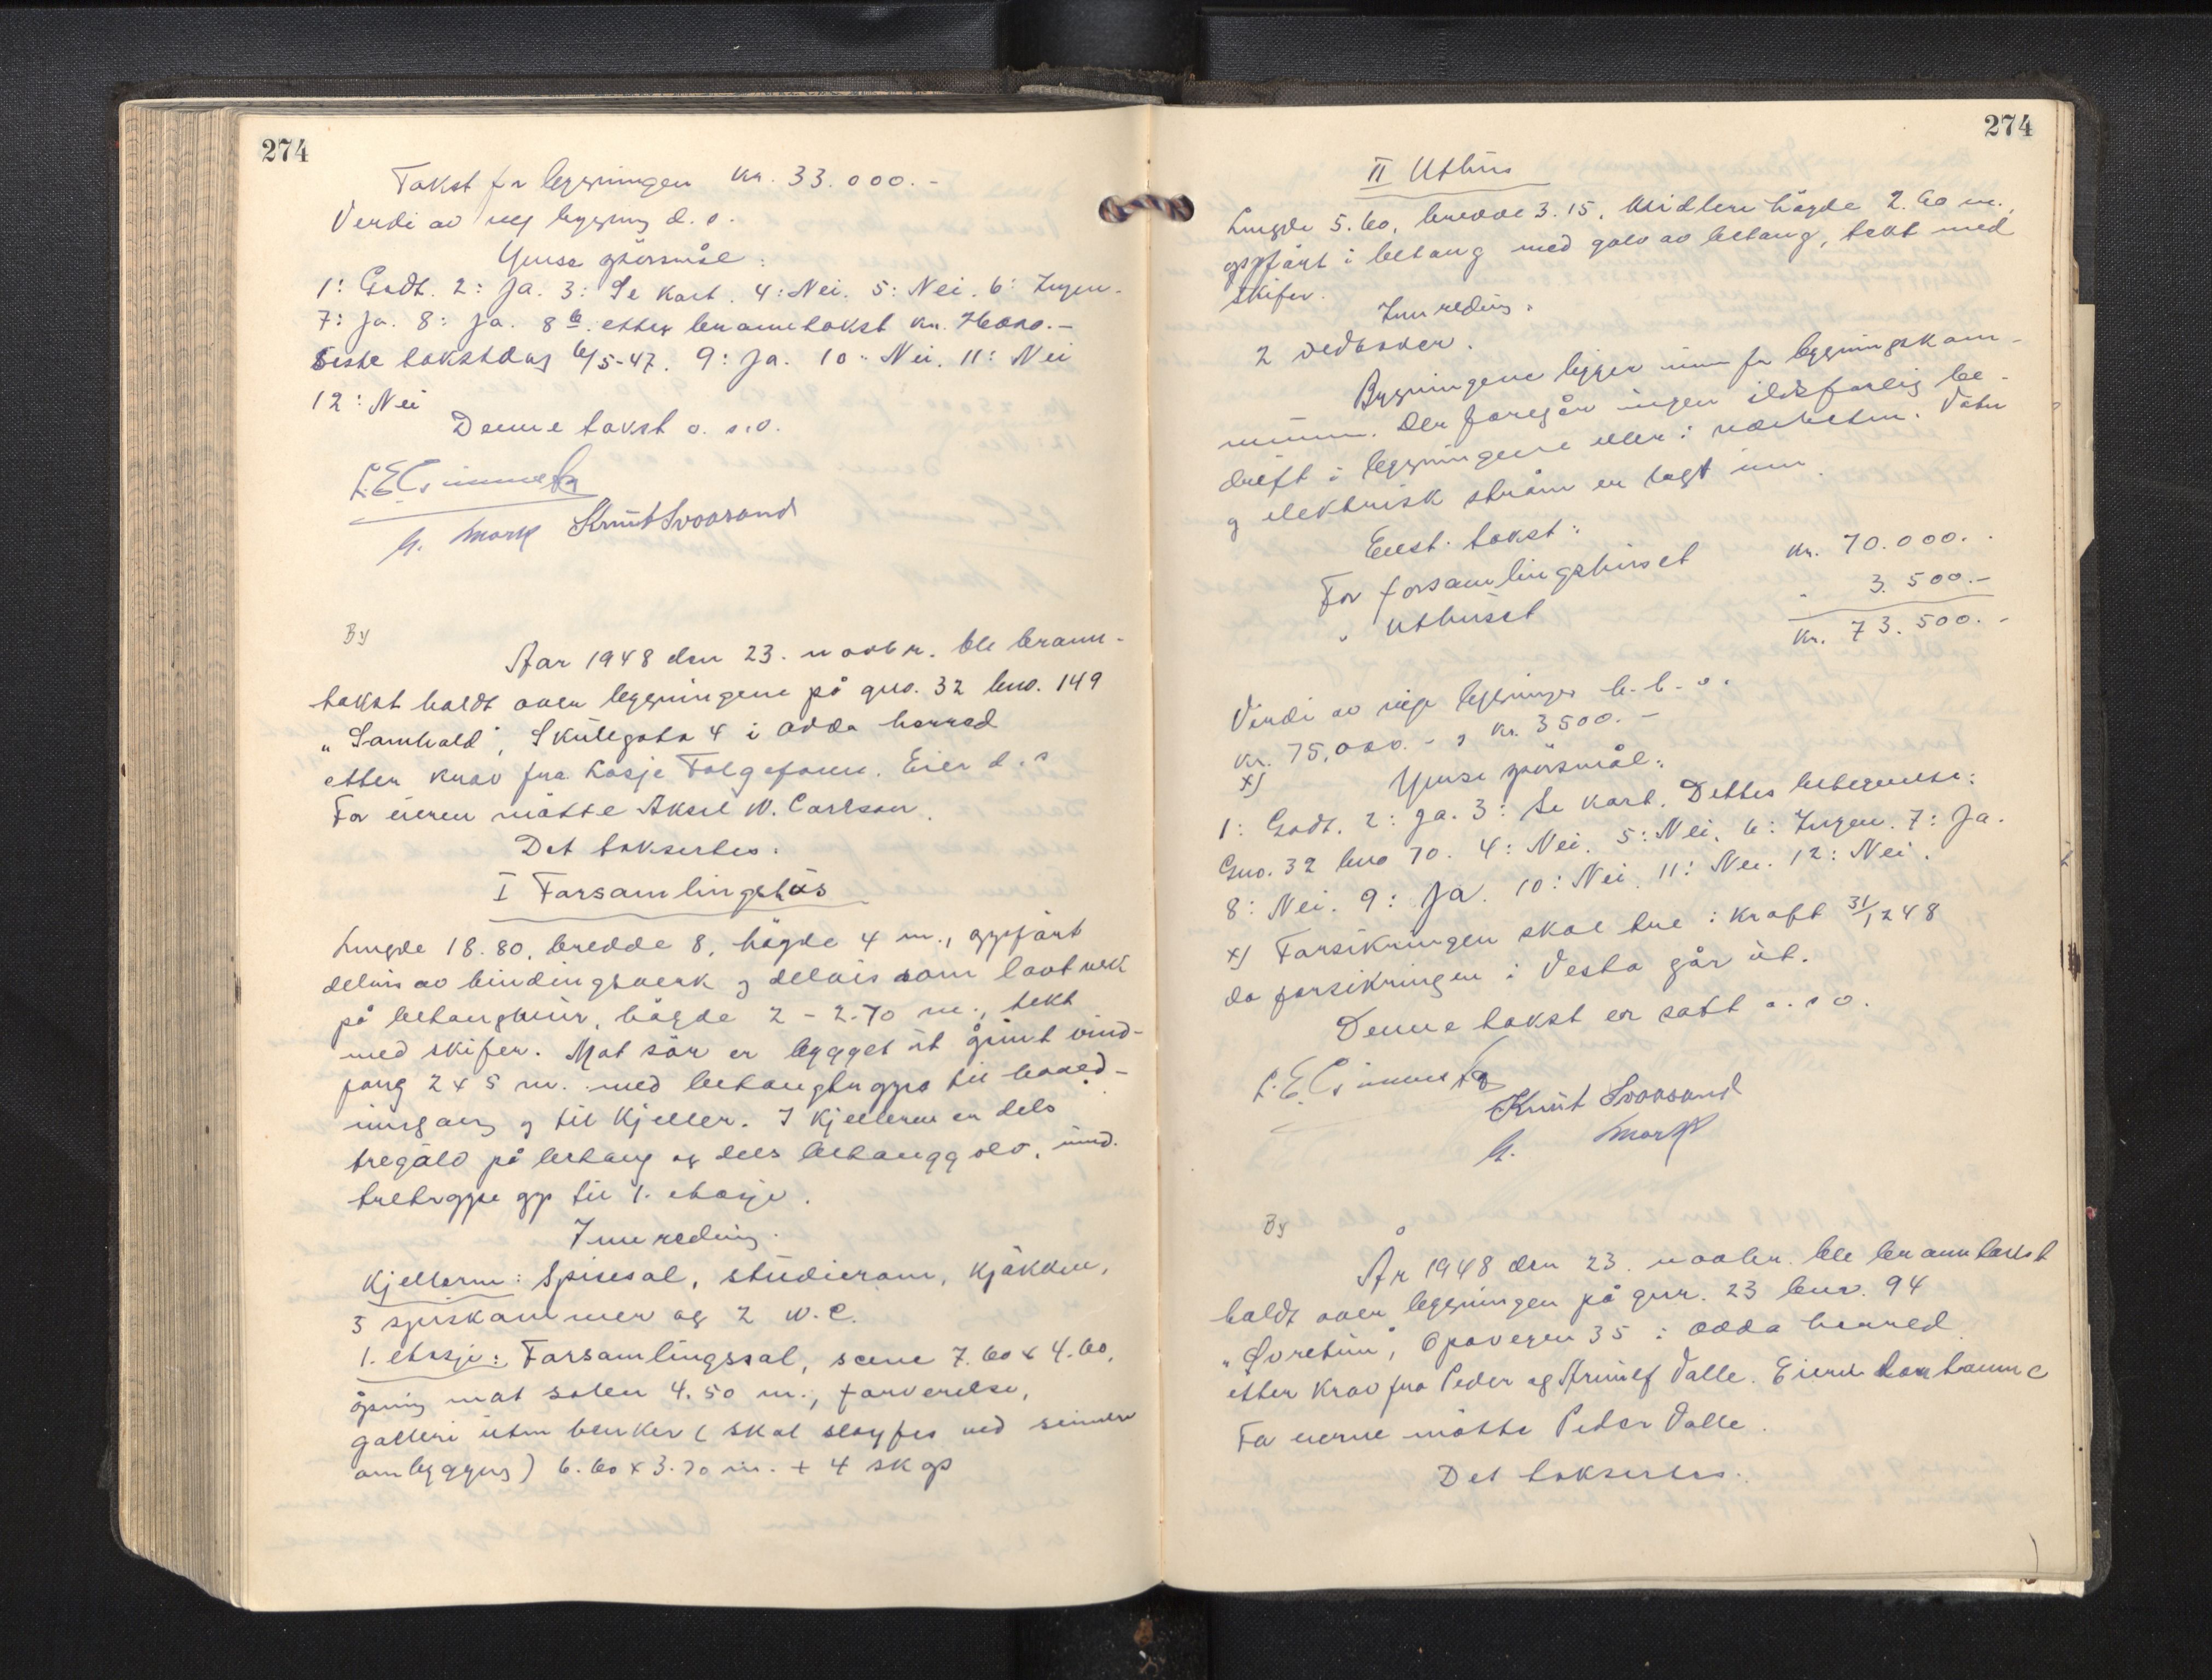 274
Takst for bygningen kr. 33.000.-
Verdi av ny bygning d. s.
Ymse spörsmål:
1: Godt. 2: Ja. 3: Se kart. 4: Nei. 5: Nei. 6: Ingen.
7: Ja. 8: Ja. 8 b. etter branntakst kr.
Siste takstdag 6/5-47. 9: Ja. 10: Nei. 11: Nei
12: Nei
Denne takst o. s. v.
Knut Svoarand
By
Aar 1948 den 23. novbr. ble brann-
takst holdt over bygningene på gno. 32 bno. 149
"Samhald", Skulegata 4 i Odda herred
etter krav fra Losje Folgefonn. Eier d. s
For eieren møtte Aksel W. Carlson.
Det taksertes:
I Forsamlingshus
Lengde 18.80, bredde 8, högde 4 m., oppfört
delvis av bindingsverk og delvis som laftverk
på betongmur, högde 2 - 2.70 m., tekt
med skifer. Mot sör er bygget ut grunt vind-
fang 2 x 5 m. med betongtrappa til hoved-
inngang og til kjeller. I kjelleren er dels
tregolv på betong og dels betonggolv, innd.
tretrappe opp til 1. etasje.
Innreding.
Kjelleren: Spisesal, studierom, kjökken,
3 spiskammer og 2 W.C.
1. etasje: Forsamlingssal, scene 7.60 x 4.60,
åpning mot salen 4.50 m., forverelse,
galleri uten benker (skal sløyfes ved seinere
ombygging) 6.60 x 3.70 m. + 4 skap
274
II Uthus
Lengde 5.60, bredde 3.15, Midlere högde 2.60 m.,
oppfört i betong med golv av betong, tekt med
skifer.
Innreding.
2 vedboder.
Bygningene ligger innen for bygningskom-
munen. Der foregår ingen ildsfarlig be-
drift i bygningene eller i nærheten. Vatn
og elektrisk ström er lagt inn.
Enst. takst:
For forsamlingshuset kr. 70.000.-
" uthuset " 3.500.-
Kr. 73.500.-
Verdi av nye bygninger h.h.v.
kr. 75.000.- og kr. 3500.-
x) Ymse spörsmål:
1: Godt. 2: Ja. 3: Se kart. Dettes betegnelse:
Gno. 32 bno 70. 4: Nei. 5: Nei. 6: Ingen. 7: Ja.
8: Nei. 9: Ja. 10: Nei. 11: Nei. 12: Nei.
x) Forsikringen skal tre i kraft 31/12 48
da forsikringen i Vesta går ut.
Denne takst er satt o. s v.
Knut Svoarand
By
År 1948 den 23. novbr. ble branntakst
holdt over bygningen på gnr. 23 bnr. 94
"Soretun", Opovegen 35 i Odda herred
etter krav fra Peder og Arnulf Valle. Eiere
For eierne møtte Peder Valle.
Det taksertes: